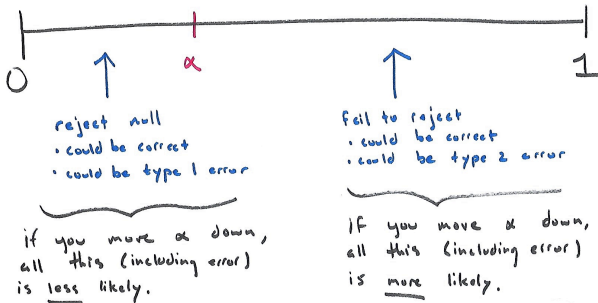 0
α
1
reject null
• could be correct
• could be type 1 error
if you move α down,
all this (including error)
is less likely.
fail to reject
• could be correct
• could be type 2 error
if you move α down,
all this (including error)
is more likely.